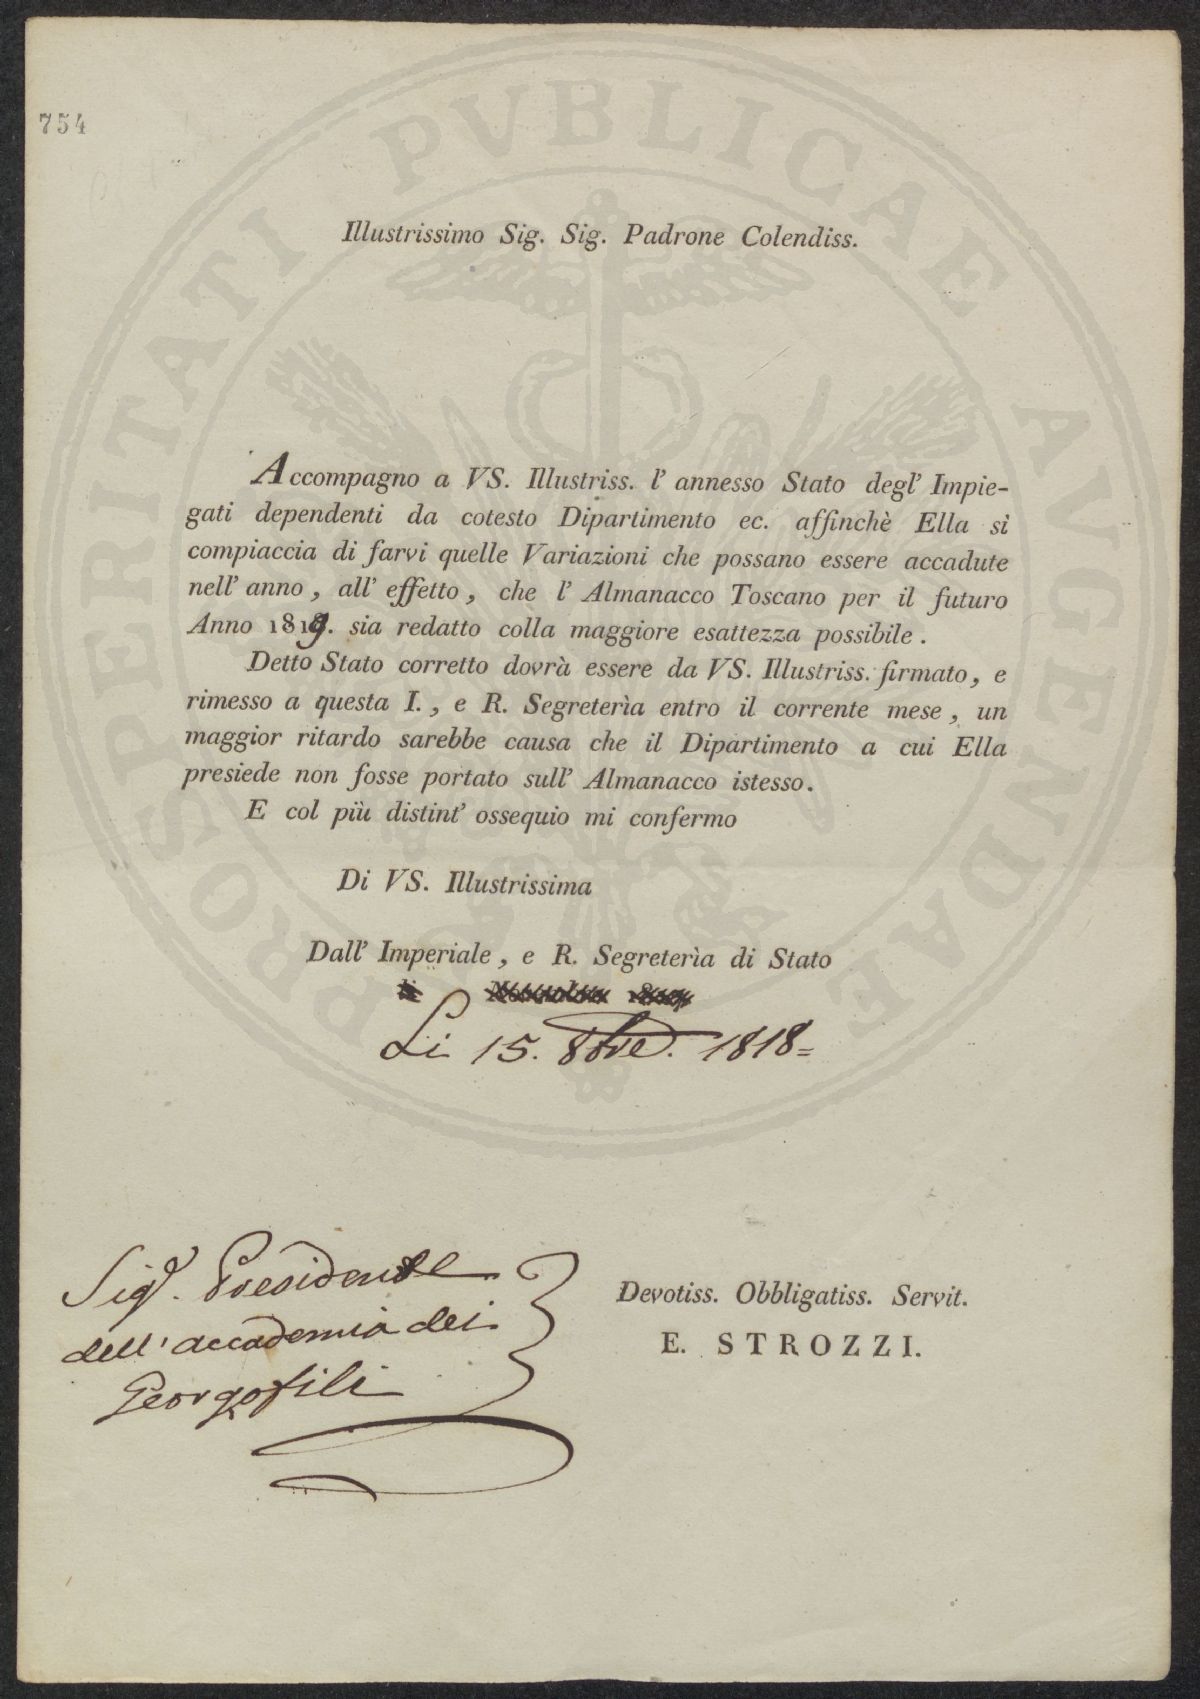 754
PROSPERITATI PVBLICAE AVGENDAE
Illustrissimo Sig. Sig. Padrone Colendiss.
Accompagno a VS. Illustriss. l' annesso Stato degl' Impie-
gati dependenti da cotesto Dipartimento ec. affinchè Ella sì
compiaccia di farvi quelle Variazioni che possano essere accadute
nell' anno, all' effetto, che l' Almanacco Toscano per il futuro
Anno 1819. sia redatto colla maggiore esattezza possibile.
Detto Stato corretto dovrà essere da VS. Illustriss. firmato, e
rimesso a questa I., e R. Segreterìa entro il corrente mese, un
maggior ritardo sarebbe causa che il Dipartimento a cui Ella
presiede non fosse portato sull' Almanacco istesso.
E col più distint' ossequio mi confermo
Di VS. Illustrissima
Dall' Imperiale, e R. Segreterìa di Stato
Li 15. 8bre. 1818=
Sigr. Presidente
dell' accademia dei
Georgofili
Devotiss. Obbligatiss. Servit.
E. STROZZI.